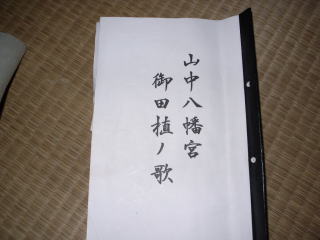 山中八幡宮
御田植ノ歌